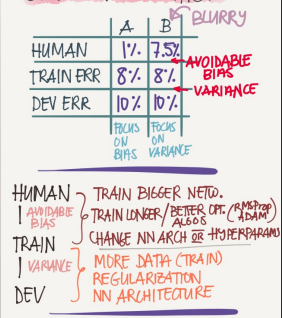 BLURRY
A B
HUMAN 1% 7.5%
AVOIDABLE BIAS
TRAIN ERR 8% 8%
VARIANCE
DEV ERR 10% 10%
FOCUS ON BIAS
FOCUS ON VARIANCE
HUMAN
AVOIDABLE BIAS
TRAIN
VARIANCE
DEV
TRAIN BIGGER NETW.
TRAIN LONGER/BETTER OPT. ALGOS (RMSPROP ADAM)
CHANGE NN ARCH OR HYPERPARAMS
MORE DATA (TRAIN)
REGULARIZATION
NN ARCHITECTURE